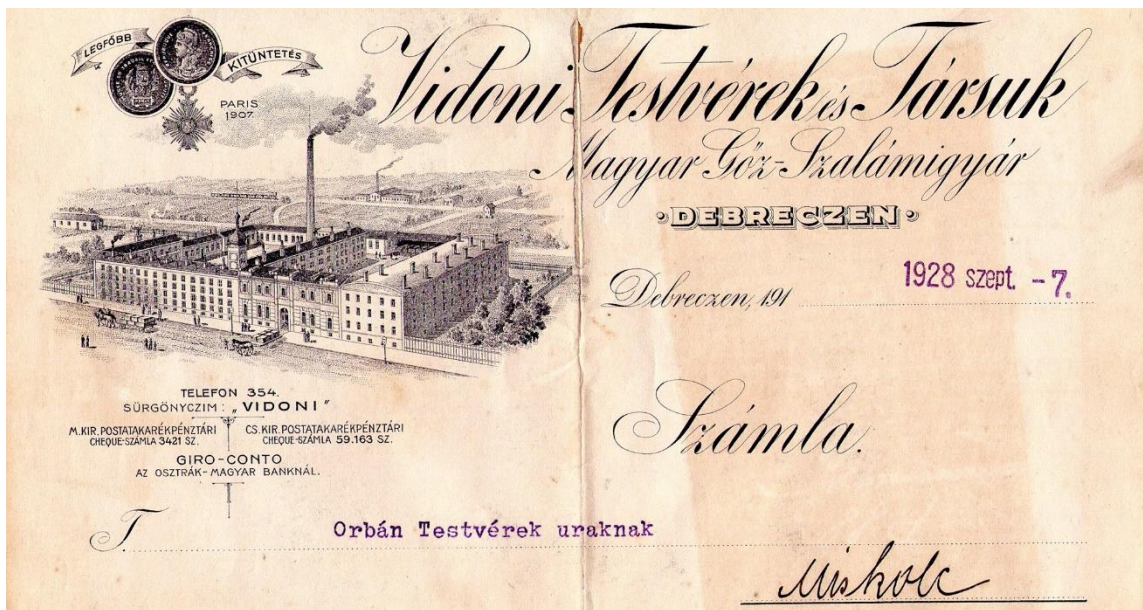 LEGFŐBB KITÜNTETÉS
PARIS
1907.
Vidoni Testvérek és Társuk
Magyar Gőz-Szalámigyár
DEBRECZEN
Debreczen, 191 1928 szept. -7.
TELEFON 354.
SÜRGÖNYCZIM: „VIDONI"
M.KIR. POSTATAKARÉKPÉNZTÁRI
CHEQUE-SZÁMLA 3421 SZ.
CS.KIR. POSTATAKARÉKPÉNZTÁRI
CHEQUE-SZÁMLA 59.163 SZ.
GIRO-CONTO
AZ OSZTRÁK-MAGYAR BANKNÁL.
Számla.
T. Orbán Testvérek uraknak
Miskolc